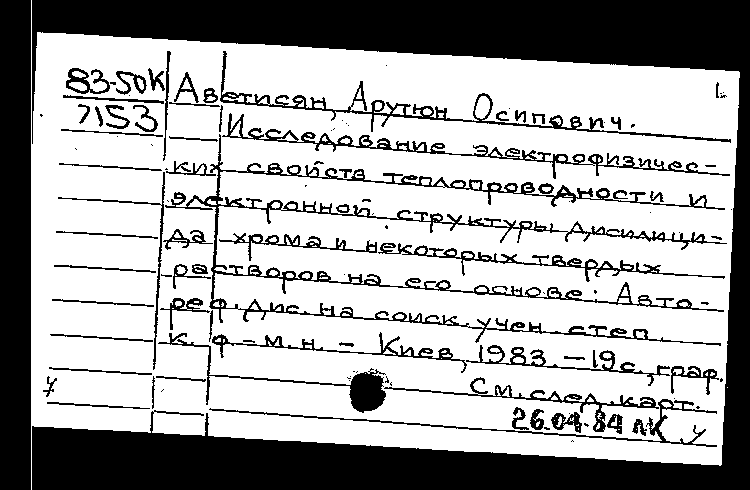 L
83-50К Аветисян, Арутюн Осипович.
7153 Исследование электрофизичес-
ких свойств теплопроводности и
электронной структуры дисилици-
да хрома и некоторых твердых
растворов на его основе: Авто-
реф. дис. на соиск. учен. степ.
к. ф.-м.н. - Киев, 1983. - 19 с., граф.
См. след. карт.
26.04.84 МК У
У